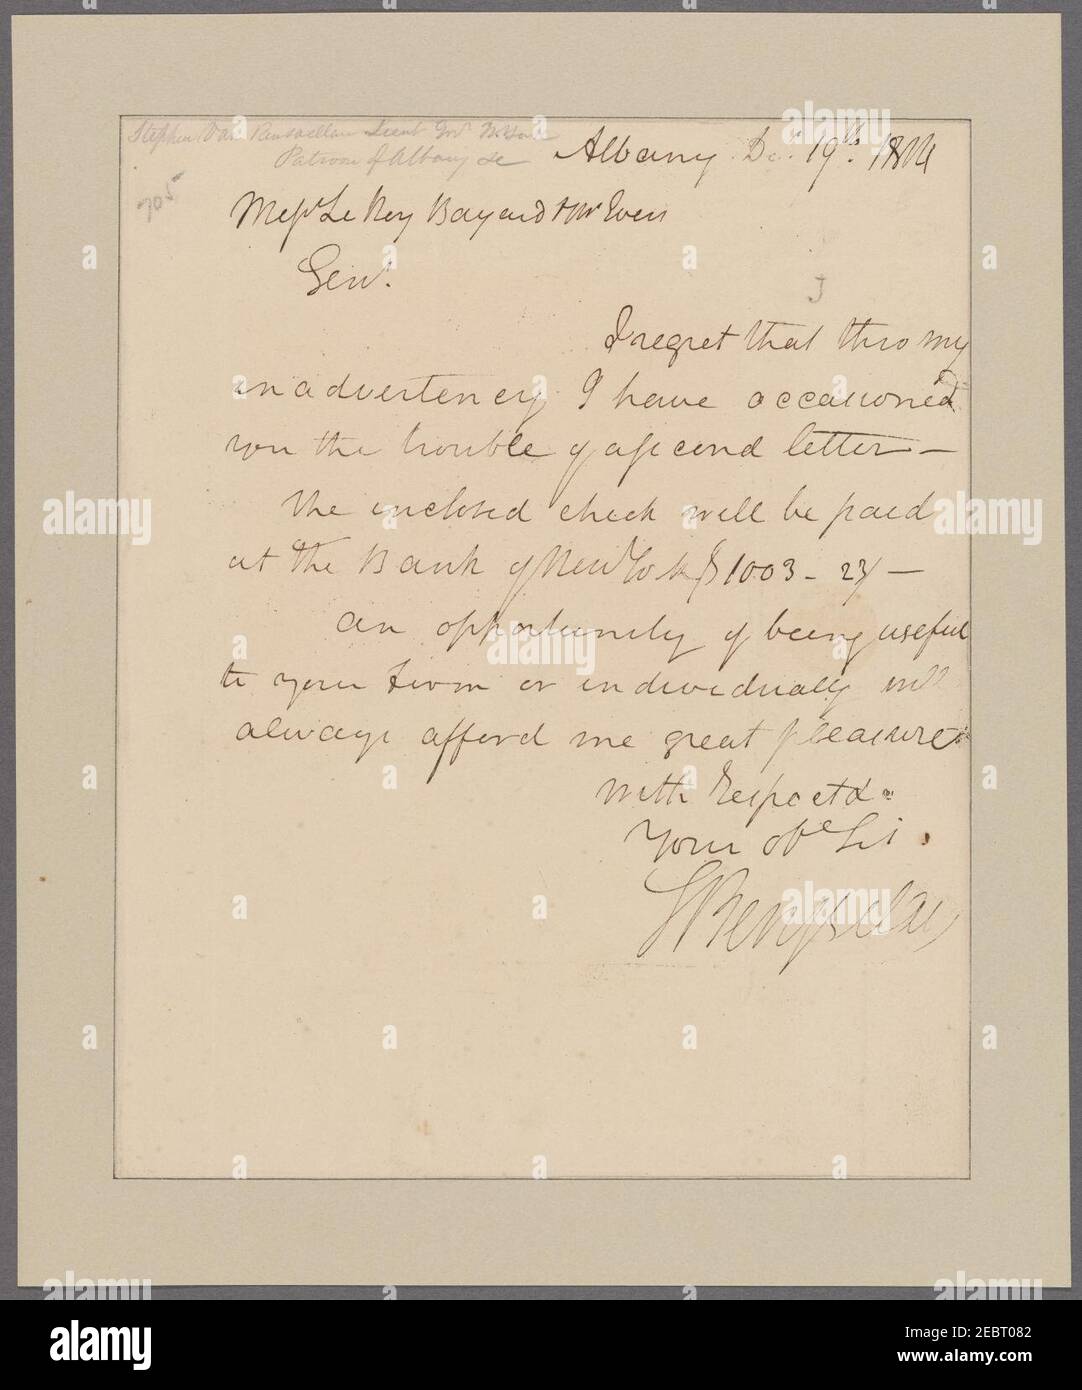 Stephen Van Rensaellar Lieut Gov. N. York
Patroon of Albany &c
Albany Dec. 19th. 1804
705
Messrs Le Roy Bayard & McEvers
Gen.
J
I regret that thro my
inadvertency I have occasioned
you the trouble of a second letter —
the enclosed check will be paid
at the Bank of New York $1003 - 27/ —
an opportunity of being useful
to your Firm or individually will
always afford me great pleasure
with Respect &c
Your obe Sert
S V Rensselaer
alamy
Image ID: 2EBT082
www.alamy.com